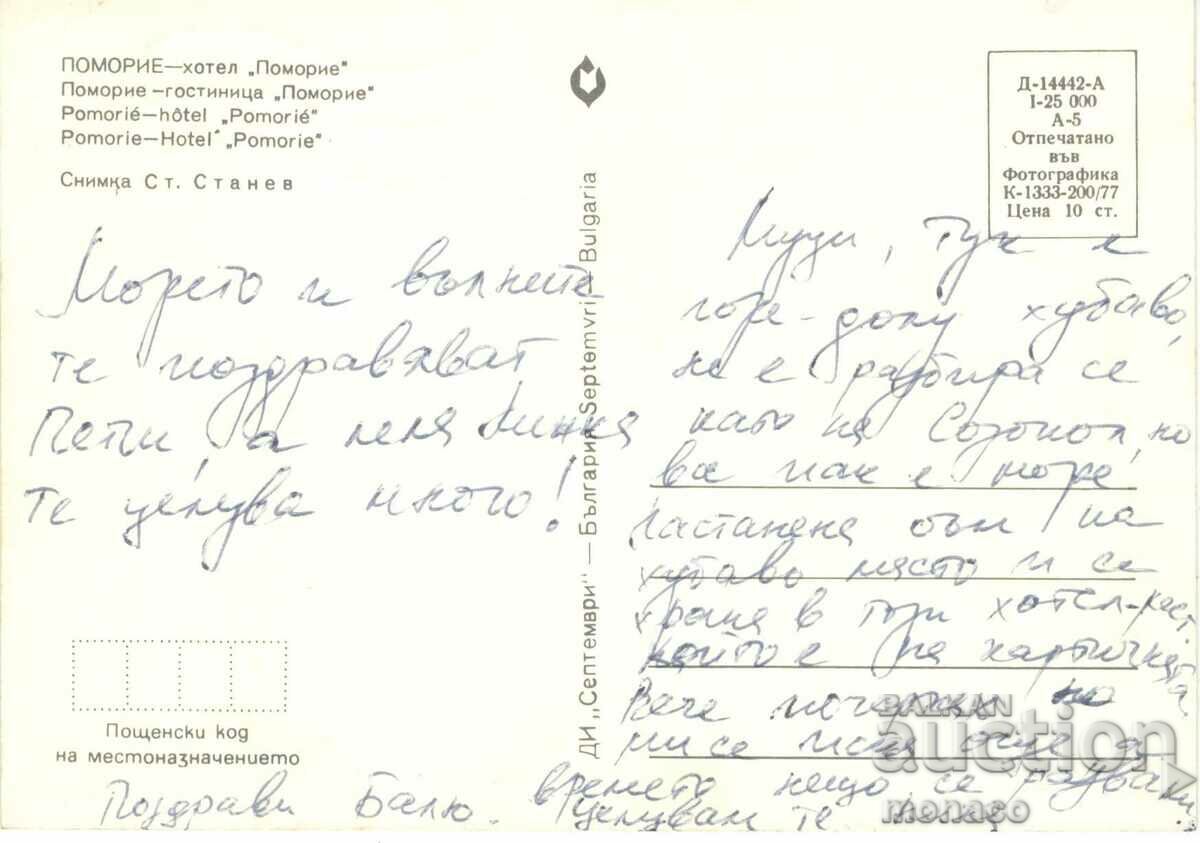 ПОМОРИЕ—хотел „Поморие"
Поморие—гостиница „Поморие"
Pomorié—hôtel „Pomorié"
Pomorie—Hotel „Pomorie"
Снимка Ст. Станев
Д-14442-А
I-25 000
А-5
Отпечатано
във
Фотографика
К-1333-200/77
Цена 10 ст.
ДИ „Септември" — България Septemvri — Bulgaria
Морето и вълните
те поздравяват
Пепи, а леля Минка
те целува много!
Муци, тук е
горе-долу хубаво,
не е разбира се
като на Созопол, но
все пак е море
Настанена съм на
хубаво място и се
храня в този хотел-рест.
който е на картичката.
Вече почернях но
ми се иска още а
времето нещо се разваля
целувам те
Поздрави Балю.
Пощенски код
на местоназначението
BALKAN
auction
monaco